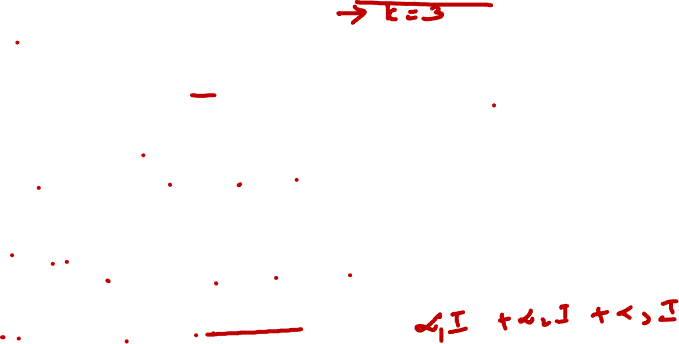 → K = 3
α₁I + α₂I + α₃I